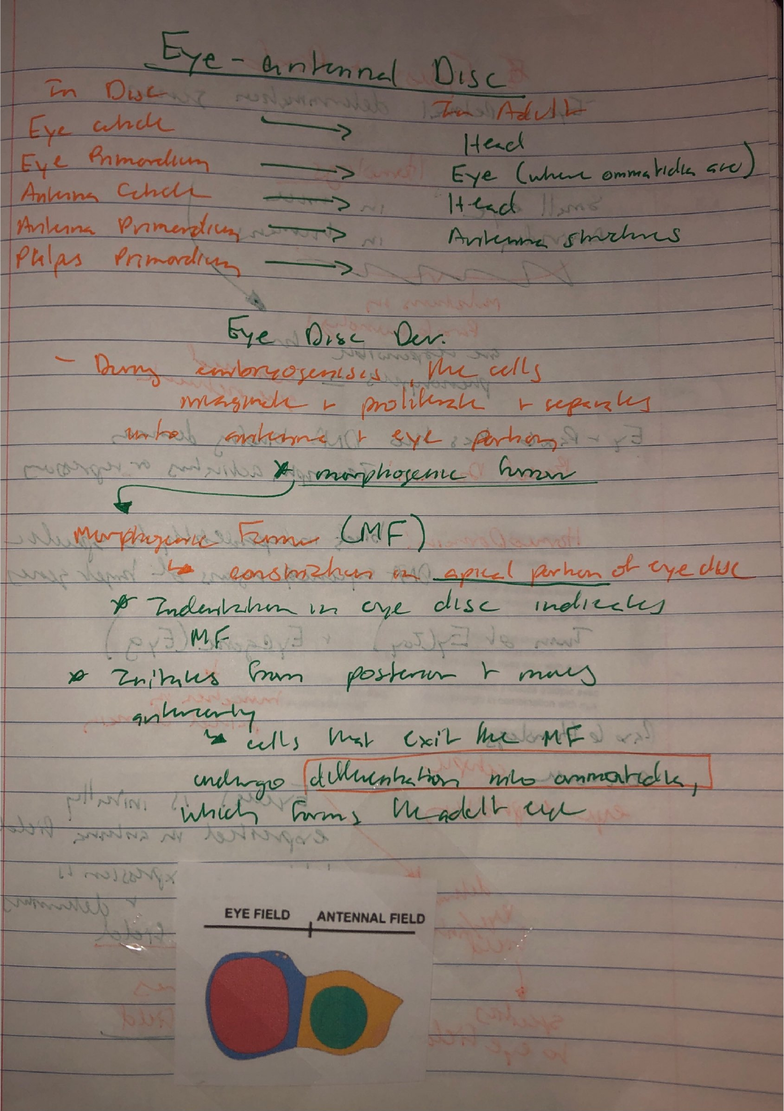 Eye-antennal Disc
In Disc In Adult
Eye cuticle → Head
Eye Primordium → Eye (where ommatidia are)
Antenna Cuticle → Head
Antenna Primordium → Antenna structures
Palpas Primordium →
Eye Disc Dev.
- During embryogenesis, the cells
invaginate + proliferate + separates
into antenna + eye portion
* morphogenic furrow
Morphogenic Furrow (MF)
↳ constriction in apical portion of eye disc
* Indentation in eye disc indicates
MF
* Initiates from posterior + moves
anteriorly
↳ cells that exit the MF
undergo differentiation into ommatidia,
which forms the adult eye
EYE FIELD ANTENNAL FIELD